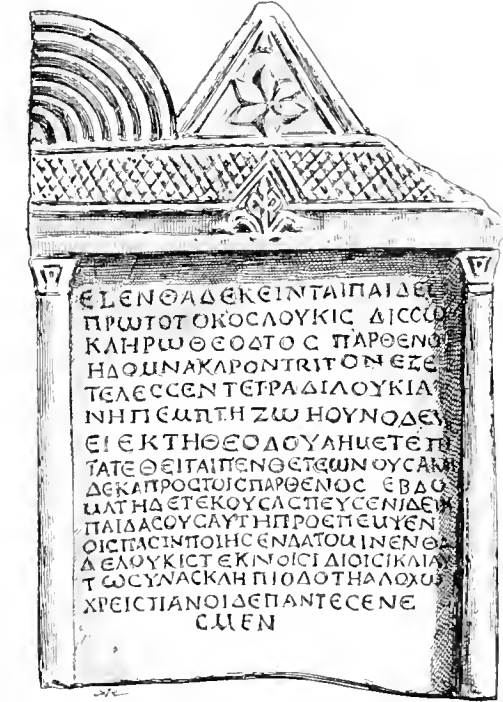 ΕΞΕΝΘΑΔΕΚΕΙΝΤΑΙΠΑΙΔΕC
ΠΡΩΤΟΤΟΚΟCΛΟΥΚΙC ΔΙCCΩ
ΚΛΗΡΩΘΕΟΔΤΟC ΠΑΡΘΕΝΟ
ΗΔΟΜΝΑΚΛΡΟΝΤRΙΤΟΝΕΞΕ
ΤΕΛΕCCΕΝΤΕΤΡΑΔΙΛΟΥΚΙΑ
ΝΗΠΕΜΠΤΗΖΩΗΟΥΝΟΔΕΥ
ΕΙΕΚΤΗΘΕΟΔΟΥΛΗΜΕΤΕΠΙ
ΤΑΤΕΘΕΙΤΑΙΠΕΝΘΕΤΕΩΝΟΥCΑΜ
ΔΕΚΑΠΡΟCΤΟΙCΠΑΡΘΕΝΟC ΕΒΔΟ
ΜΑΤΗΔΕΤΕΚΟΥCΑCΠΕΥCΕΝΙΔΕΙΝ
ΠΑΙΔΑCΟΥCΑΥΤΗΠΡΟΕΠΕΜΨΕΝ
ΟΙCΠΑCΙΝΠΟΙΗCΕΝΔΑΤΟΜΙΝΕΝΘΑ
ΔΕΛΟΥΚΙCΤΕΚΙΝΟΙCΙΔΙΟΙCΙΚΛΙΑΥ
ΤΩCΥΝΑCΚΛΗΠΙΟΔΟΤΗΑΛΟΧΩ
ΧΡΕΙCΤΙΑΝΟΙΔΕΠΑΝΤΕCΕΝΕ
CΜΕΝ